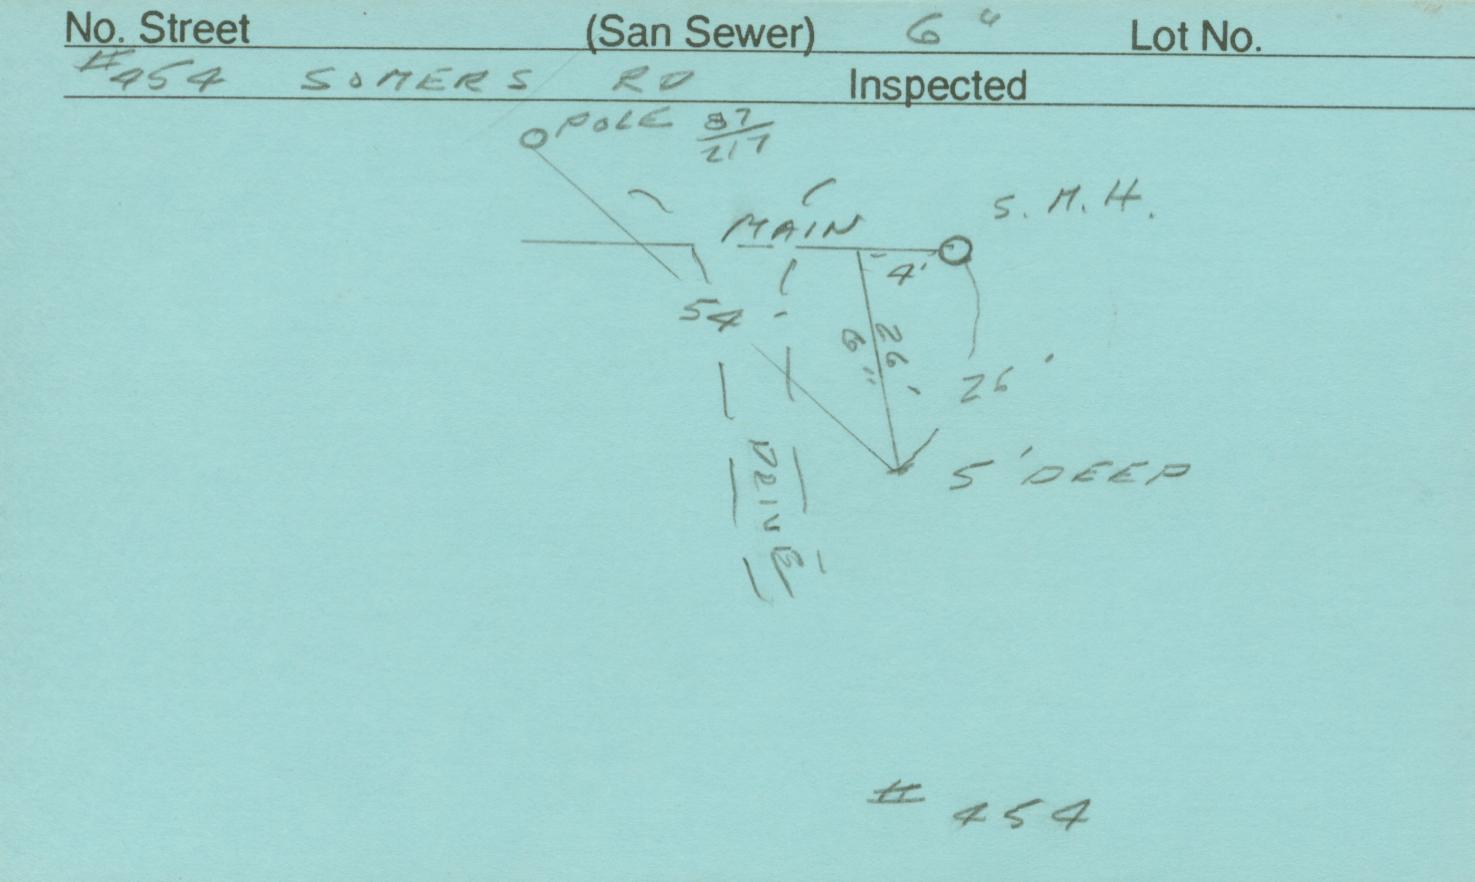 No. Street (San Sewer) 6" Lot No.
#454 SOMERS RD Inspected
POLE 87/217
S. M. H.
MAIN
4'
54'
26'
6"
26'
5' DEEP
DRIVE
# 454